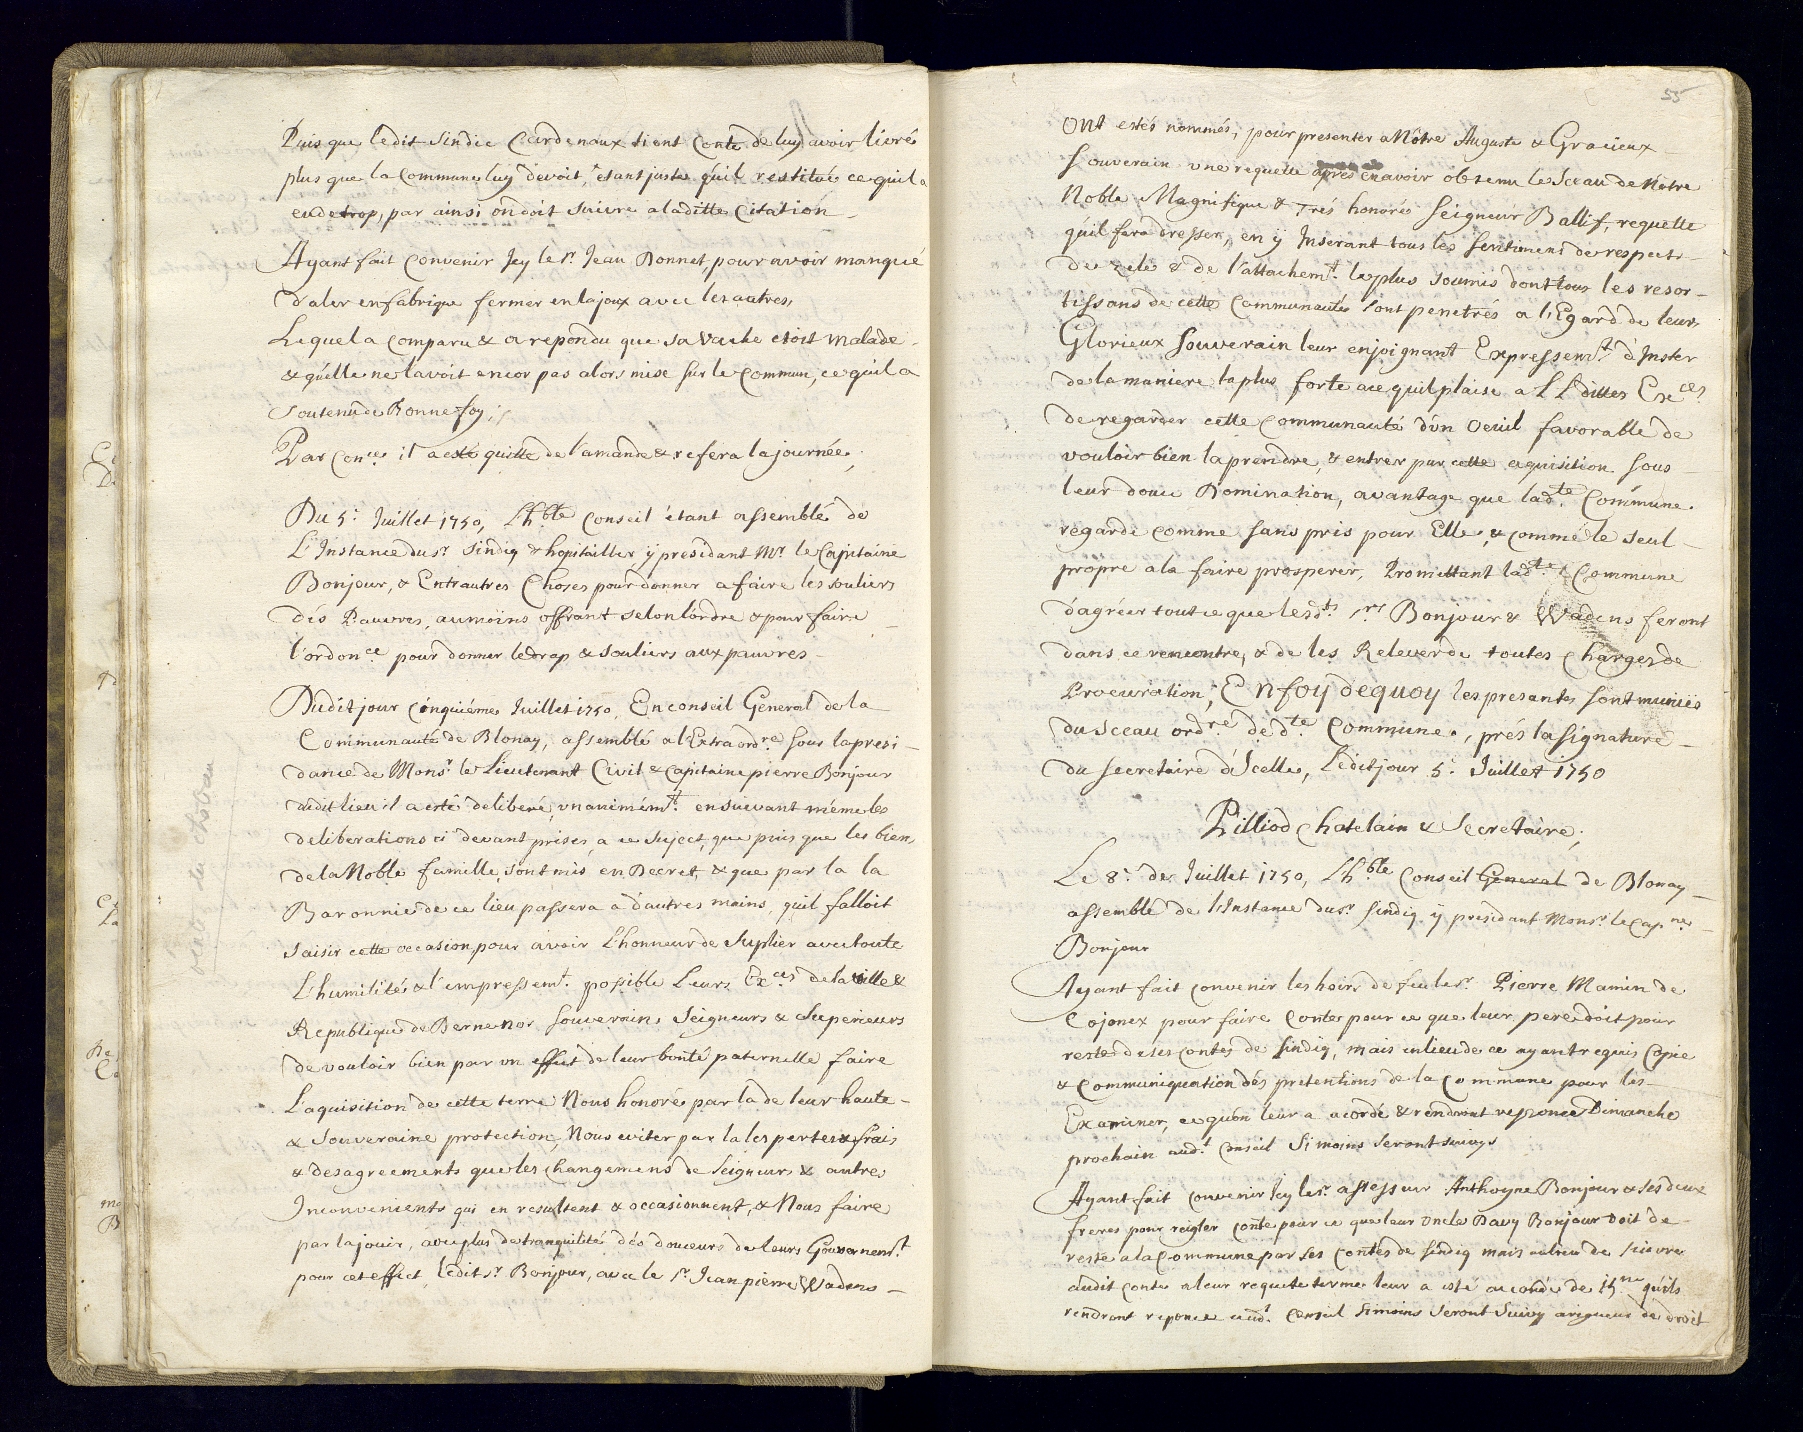 Puis que ledit Sindic Cardenaux tient Conte de luy avoir livré
plus que la Commune luy devoit, étant juste qu'il restitue ce quil a
eu de trop, par ainsi on doit suivre a laditte Citation
Ayant fait Convenir Icy le Sr. Jean Bonnet, pour avoir manqué
d'aler en fabrique fermer en lajoux avec les autres,
Lequel a Comparu & a repondu que sa Vache etoit malade
& qu'elle ne lavoit encor pas alors mise sur le Commun, ce quil a
soutenu de Bonne foy;
Par Conce. il a esté quitte de l'amande & refera la journée,
Du 5e. Juillet 1750, Lhble Conseil étant assemblé de
L'Instance du Sr. Sindiq & hopitailler ÿ presidant Mr. le Capitaine
Bonjour, & Entrautres Choses pour donner a faire les souliers
dés Pauvres, au moins offrant selon lordre & pour faire
l'ordonce pour donner le drap & souliers aux pauvres
Dudit jour Cinquiéme Juillet 1750. En conseil General de la
Communauté de Blonay, assemblé a l'Extraordre. sous la presi-
dance de Monsr. le Lieutenant Civil & Capitaine pierre Bonjour
dudit lieu il a esté deliberé, unanimémt. en suivant même les
deliberations ci devant prises, a ce Suject, que puis que les bien,
de la Noble famille, sont mis en Decret, & que par la la
Baronnie de ce lieu passera a d'autres mains, quil falloit
saisir cette occasion pour avoir L'honneur de Suplier avec toute
L'humilité & l'empressemt. possible Leurs Exces de la Ville &
Republique de Berne nos Souverains Seigneurs & Superieurs
de vouloir bien par un effect de leur bonté paternelle faire
L'aquisition de cette terre Nous honoré par la de leur haute
& Souveraine protection, Nous eviter par la les pertes & frais
& desagreements que les changemens de Seigneurs & autres
Inconvenients qui en resultent & occasionnent, & Nous faire
par la jouir, avec plus de tranquilité dés douceurs de leurs Gouvernemt.
pour cet effect, ledit Sr. Bonjour, avec le Sr. Jean pierre Wadens
55
Ont estés nommés, pour presenter a Nôtre Auguste & Gracieux
Souverain une requette après en avoir obtenu le Sceau de Nôtre
Noble Magnifique & Trés honoré Seigneur Ballif, requette
qu'il fera dresser, en ÿ Inserant tous les sentimens de respect
de zele & de l'attachemt. le plus soumis dont tous les resor-
tissans de cette Communautés sont penetrés a l'Egard de leurs
Glorieux Souverain leur enjoignant Expressemt. d'Inster
de la maniere la plus forte a ce quil plaise a LL dittes Exces
de regarder cette Communauté d'un Oeuil favorable de
vouloir bien la prendre, & entrer par cette aquisition sous
leur douce Domination, avantage que ladte Commune
regarde comme sans pris pour Elle, & comme le seul
propre a la faire prosperer, Promettant ladte. Commune
d'agréer tout ce que lesdts. Srs Bonjour & Wadens feront
dans ce rencontre, & de les Relever de toutes Charges de
Procuration; En foy de quoy les presantes sont muniës
du Sceau ordre. de dte. Commune, prés la signature
du Secretaire d'Icelle, Ledit jour 5e. Juillet 1750
Pilliod Chatelain & Secretaire;
Le 8e. de Juillet 1750, Lhble Conseil General de Blonay
assemblé de L'Instance du Sr. Sindiq ÿ presidant Monsr. le Capne.
Bonjour
Ayant fait convenir les hoirs de feu le Sr. Pierre Mamin de
Cojonex pour faire Contes pour ce que leur pere doit pour
reste de ses contes de Sindiq, mais en lieu de ce ayant requis Copie
& Communiquation dés pretentions de la Commune pour les
Examiner, ce qu'on leur a acordé & rendront reponce Dimanche
prochain audt. Conseil Si moins seront suivys
Ayant fait convenir Icy le Sr. assesseur Anthoyne Bonjour & ses deux
freres pour reigler conte pour ce que leur Oncle Davy Bonjour Doit de
reste a la Commune par ses Contes de Sindiq mais au lieu de suivre
audit conte a leur requete terme leur a esté acordé de 15ne qu'ils
rendront reponce audt. Conseil Simoins Seront Suivy arigueur de droit